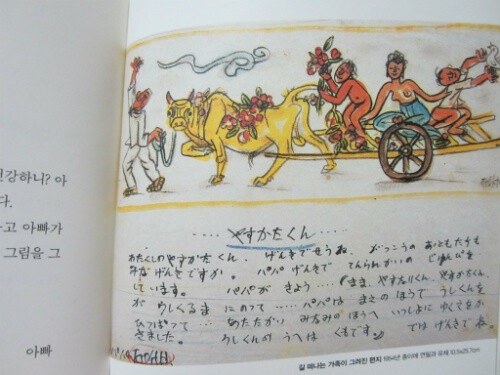 건강하니? 아
다.
고 아빠가
그림을 그
아빠
やすかたくん
わたくしの やすかたくん、げんきでせうね。がっこうの おともだちも
みな げんきですか。パパ げんきで てんらんかいの じゅんび
しています。パパが きょう…… (まま、やすなりくん、やすかたくん、
が うしくるまに のって……パパは まえの ほうで うしくんを
ひっぱって…… あたたかい みなみの ほうへ いっしょに ゆくえをか
きました。うしくんの うへは くもです。
では げんきでね
길 떠나는 가족이 그려진 편지 1954년 종이에 연필과 유채 10.5x25.7cm